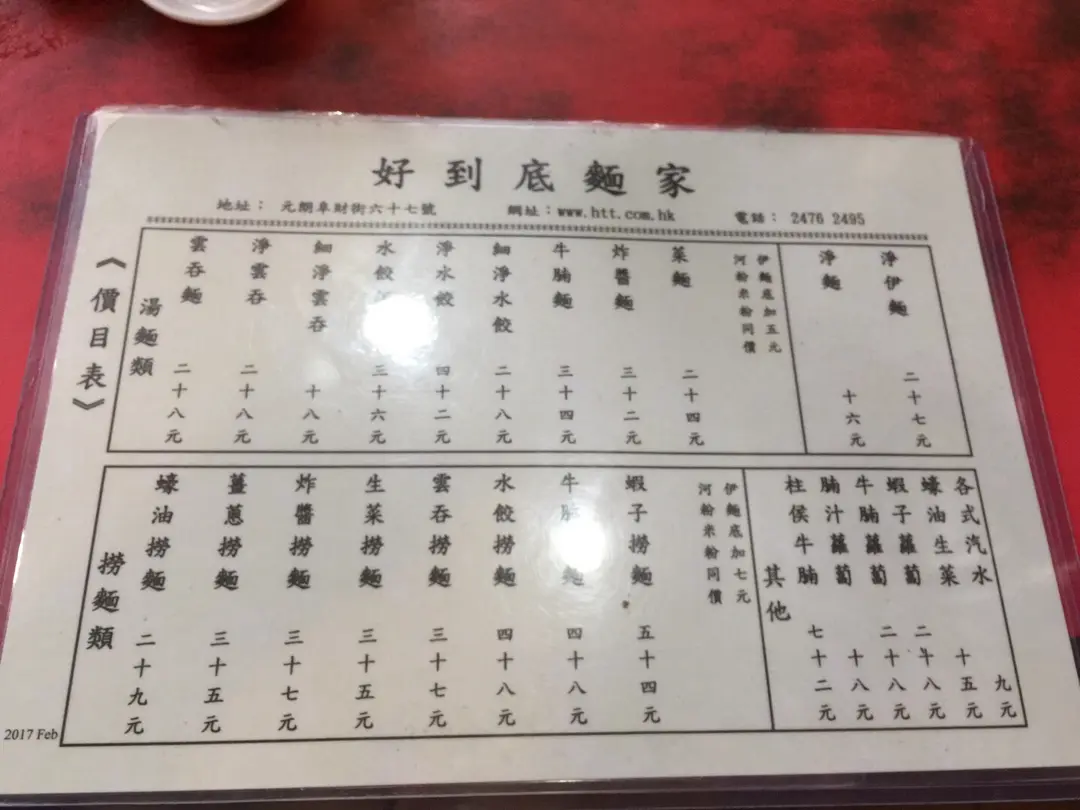 好到底麵家
地址： 元朗阜財街六十七號
網址：www.htt.com.hk
電話： 2476 2495
《價目表》
湯麵類
雲吞麵 二十八元
淨雲吞 二十八元
細淨雲吞 十八元
水餃 三十六元
淨水餃 四十二元
細淨水餃 二十八元
牛腩麵 三十四元
炸醬麵 三十二元
菜麵 二十四元
伊麵底加五元
河粉米粉同價
淨麵 十六元
淨伊麵 二十七元
撈麵類
蠔油撈麵 二十九元
薑蔥撈麵 三十五元
炸醬撈麵 三十七元
生菜撈麵 三十五元
雲吞撈麵 三十七元
水餃撈麵 四十八元
牛腩撈麵 四十八元
蝦子撈麵 五十四元
伊麵底加七元
河粉米粉同價
其他
柱侯牛腩 七十二元
腩汁蘿蔔 十八元
牛腩蘿蔔 二十八元
蝦子蘿蔔 二十八元
蠔油生菜 十五元
各式汽水 九元
2017 Feb